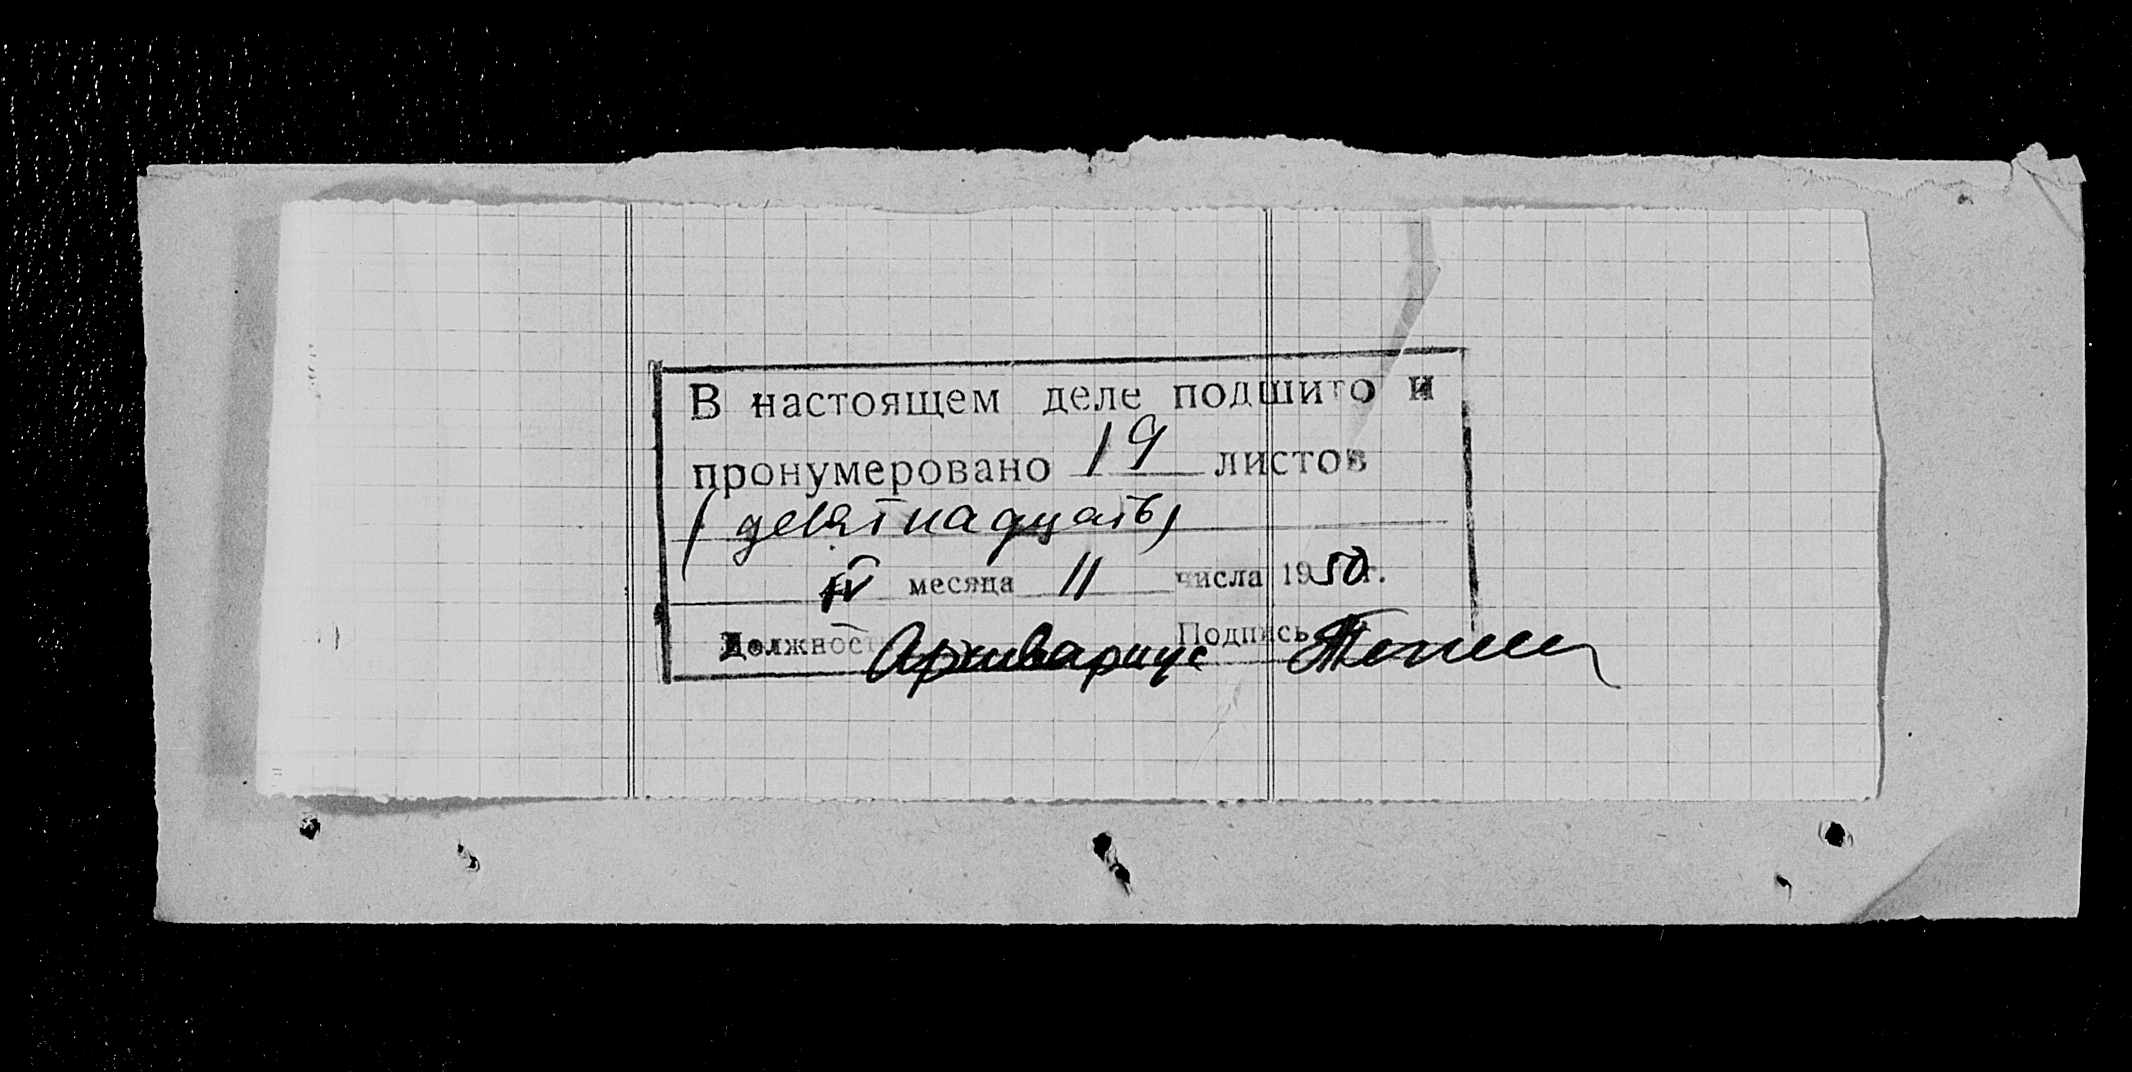 В настоящем деле подшито и
пронумеровано 19 листов
(девятнадцать)
IV месяца 11 числа 1950 г.
Должность Архивариус Подпись